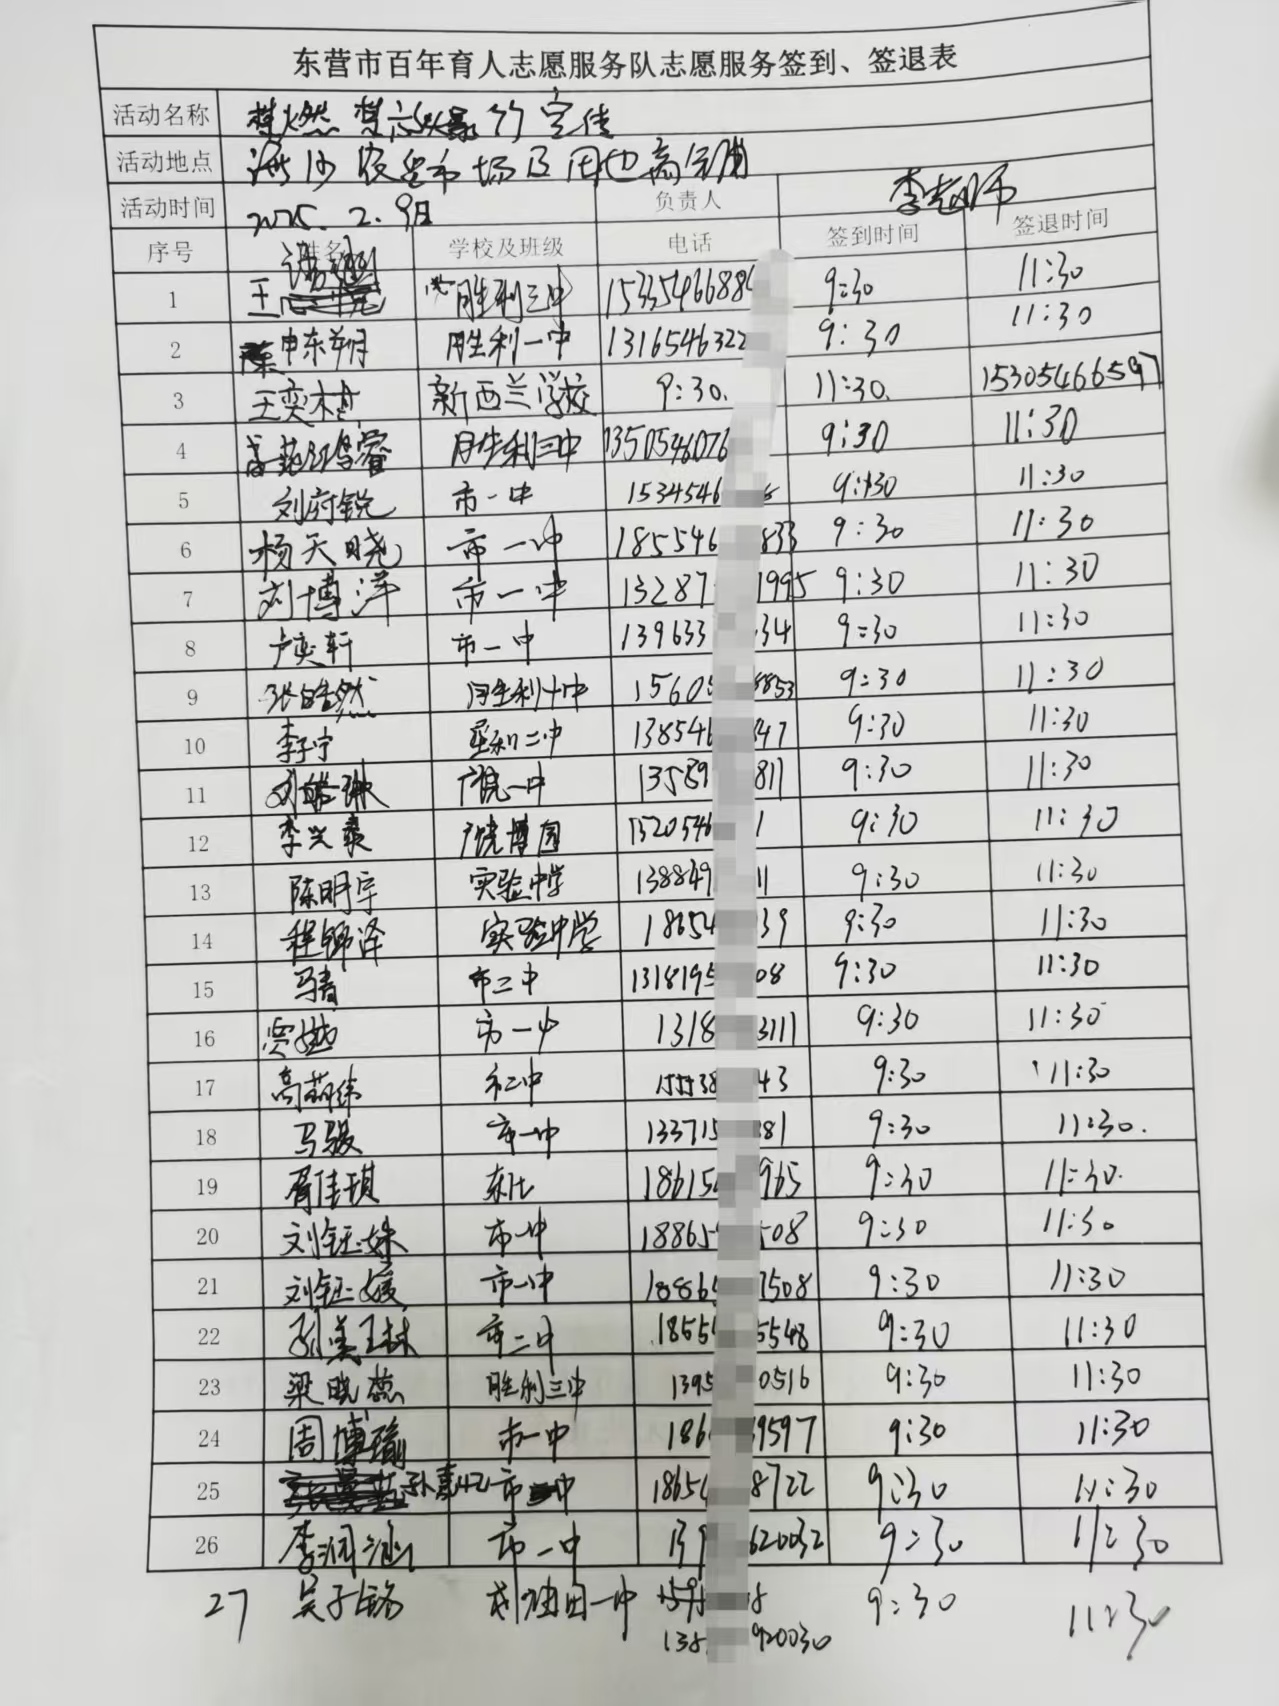 东营市百年育人志愿服务队志愿服务签到、签退表
活动名称 禁燃禁 的宣传
活动地点 市场及周边商
活动时间 2025.2.9日 负责人 李老师
序号 姓名 学校及班级 电话 签到时间 签退时间
1 王 胜利三中 1533546688 9:30 11:30
2 申东朔 胜利一中 1316546322 9:30 11:30
3 王奕 新西兰学校 9:30. 11:30. 15305466597
4 胜利三中 1350546076 9:30 11:30
5 刘府锐 市一中 1534546 9:30 11:30
6 杨天晓 市一中 185546 833 9:30 11:30
7 刘博洋 市一中 13287 1995 9:30 11:30
8 卢奕轩 市一中 139633 34 9:30 11:30
9 张皓然 胜利十中 1560 8853 9:30 11:30
10 李子宁 垦利二中 138546 47 9:30 11:30
11 刘 琳 广饶一中 13589 811 9:30 11:30
12 李兴泰 广饶博园 1520546 1 9:30 11:30
13 陈明宇 实验中学 138849 11 9:30 11:30
14 程锦泽 实验中学 18654 39 9:30 11:30
15 马春 市二中 1318195 08 9:30 11:30
16 贾 市一中 1318 3111 9:30 11:30
17 高莉伟 二中 15538 43 9:30 11:30
18 马骏 市一中 133715 81 9:30 11:30.
19 胥佳琪 18615 965 9:30 11:30.
20 刘钰姝 市一中 18865 508 9:30 11:30
21 刘钰媛 市一中 18865 7508 9:30 11:30
22 市二中 1855 5548 9:30 11:30
23 梁晓蕊 胜利三中 1395 0516 9:30 11:30
24 周博瑜 市一中 186 9597 9:30 11:30
25 孙嘉忆 市 中 1865 8722 9:30 11:30
26 李润涵 市一中 139 620032 9:30 11:30
27 吴子铭 利油田一中 159 8 9:30 11:30
138 920030